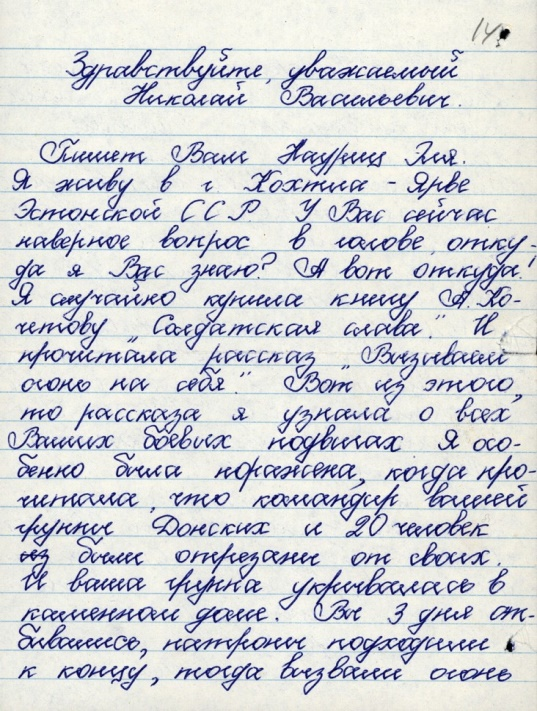 14.
Здравствуйте, уважаемый
Николай Васильевич.
Пишет Вам Науриц Эля.
Я живу в г Кохтла - Ярве
Эстонской ССР У Вас сейчас
наверное вопрос в голове, отку-
да я Вас знаю? А вот откуда!
Я случайно купила книгу А. Ко-
четову „Солдатская слава". И
прочитала рассказ „Вызываем
огонь на себя". Вот из этого,
то рассказа я узнала о всех
Ваших боевых подвигах Я осо-
бенно была поражена, когда про-
читала, что командир вашей
группы Донских и 20 человек
из были отрезаны от своих.
И ваша группа укрывалась в
каменном доме. Вы 3 дня от-
бивались, патроны подходили
к концу, тогда вызвали огонь